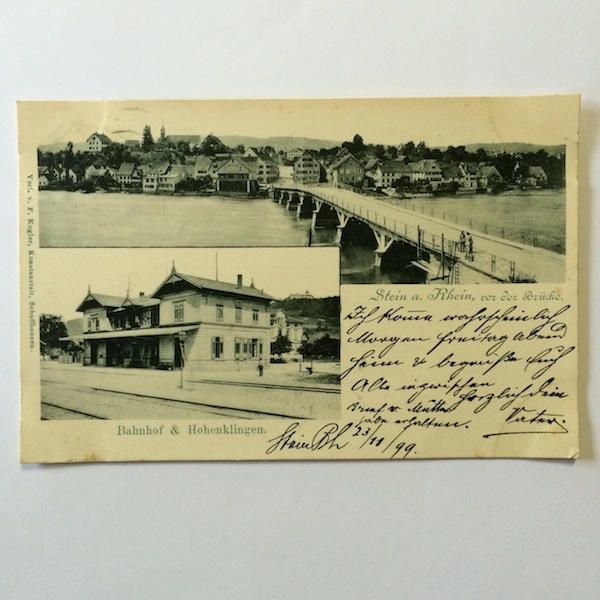 Verl. v. F. Kugler, Kunstanstalt, Schaffhausen.
Stein a. Rhein, vor der Brücke.
Ich komme wahrscheinlich
Morgen freitag Abend
heim & begrüße Euch
Alle inzwischen
herzlich Dein
Brief v. Mutter
habe erhalten. Vater.
Bahnhof & Hohenklingen.
Stein Rh 23/11/99.